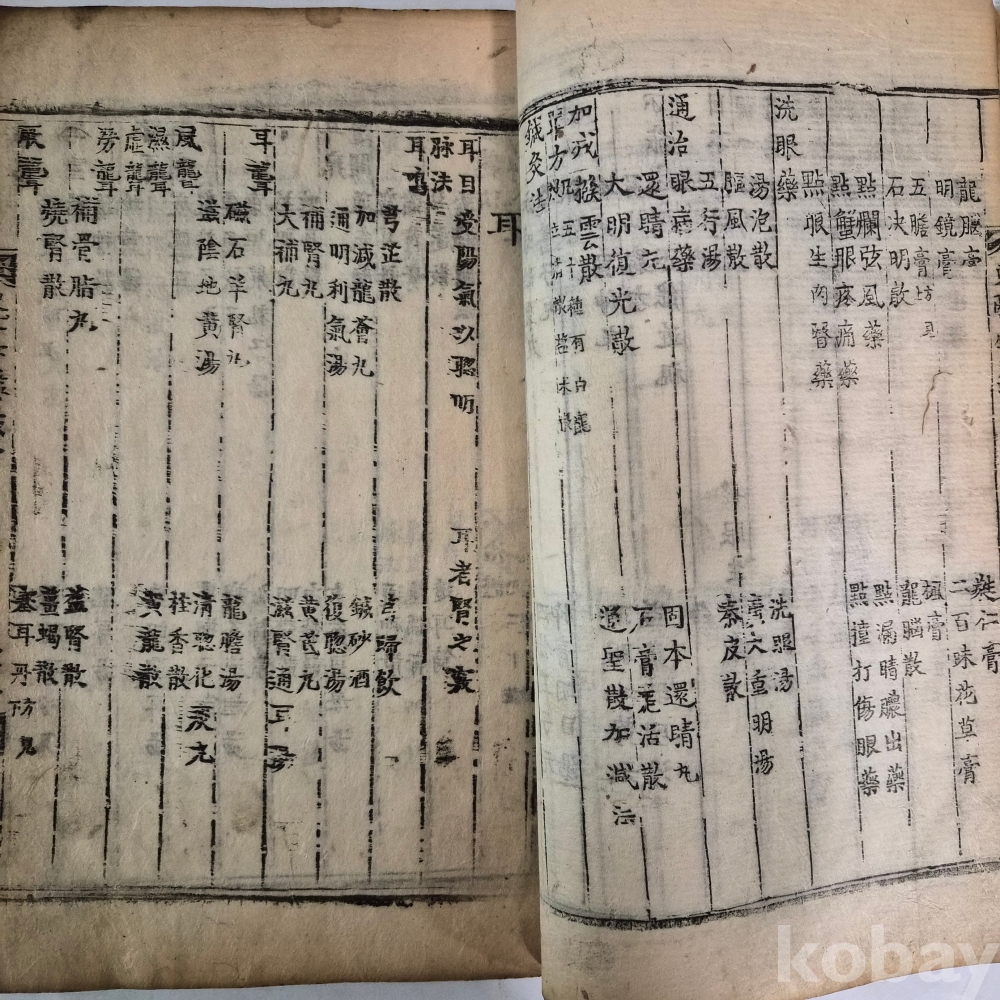 龍腦膏
蕤仁膏
明鏡膏
二百味花草膏
五膽膏
楓膏
石決明散
龍腦散
點爛弦風藥
點漏睛膿出藥
點蟹眼疼痛藥
點撞打傷眼藥
點眼生肉瞖藥
洗眼藥
湯泡散
洗眼湯
驅風散
重明湯
五行湯
秦皮散
通治眼病藥
還睛丸
固本還睛丸
大明復光散
石膏羌活散
加減撥雲散
道聖散加減法
單方
五十種有
鍼灸法
耳
耳目受陽氣以聰明
耳者腎之竅
脉法
耳鳴
芎芷散
芎歸飮
加減龍薈丸
鍼砂酒
通明利氣湯
復聰湯
補腎丸
黃芪丸
大補丸
滋腎通耳湯
耳聾
磁石羊腎丸
龍膽湯
滋陰地黃湯
清聰化痰丸
風聾
桂香散
濕聾
黃龍散
虛聾
勞聾
補骨脂丸
益腎散
燒腎散
薑蝎散
厥聾
塞耳丹
kobay